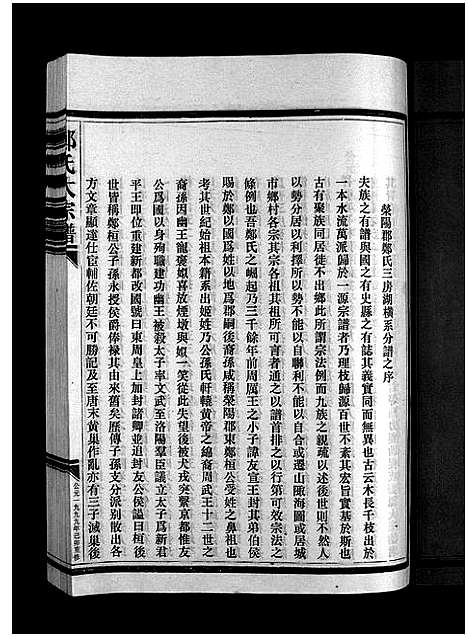 滎陽郡鄭氏三房湖橫系分譜之序
夫族之有譜與國之有史縣之有誌其義實同而無異也古云木長千枝出於
一本水流萬派歸於一源宗譜者乃理枝歸源百世不紊其宏旨實基於斯也
古有聚族同居徙不出鄉此所謂宗法例而九族之親疏以述後世則不然人
以勢分居以利擇所以勢不能以自聯利不能以自合或遷山陬海圖或居城
市鄉村各宗其宗各祖其祖所可考者通之以譜首排之以行第可效宗法之
條例也吾鄭氏之崛起乃三千餘年前周厲王之小子諱友宣王封其弟伯侯
賜於鄭以國為姓以地為郡嗣後裔孫咸稱滎陽郡東鄭桓公受姓之鼻祖也
考其世紀始祖本籍系出姬姓乃公孫氏軒轅黃帝之綿裔周武王十二世之
裔孫因幽王寵褒姒喜放煙墩與姒一笑從此失望後被犬戎突擊京都惟友
公為國以身殉職建功幽王被殺太子率文武至洛陽羣臣議立太子為新君
平王即位重建新都改國號曰東周皇上加封諸卿並追封友公侯謚曰桓後
世皆稱鄭桓公子孫永授侯爵俸祿其由來舊矣歷傳子孫支分派別散出各
方文章顯達仕宦輔佐朝廷不可勝記及至唐末黃巢作亂亦有三子滅巢後
鄭氏大宗譜
公元一九九九年己卯重修